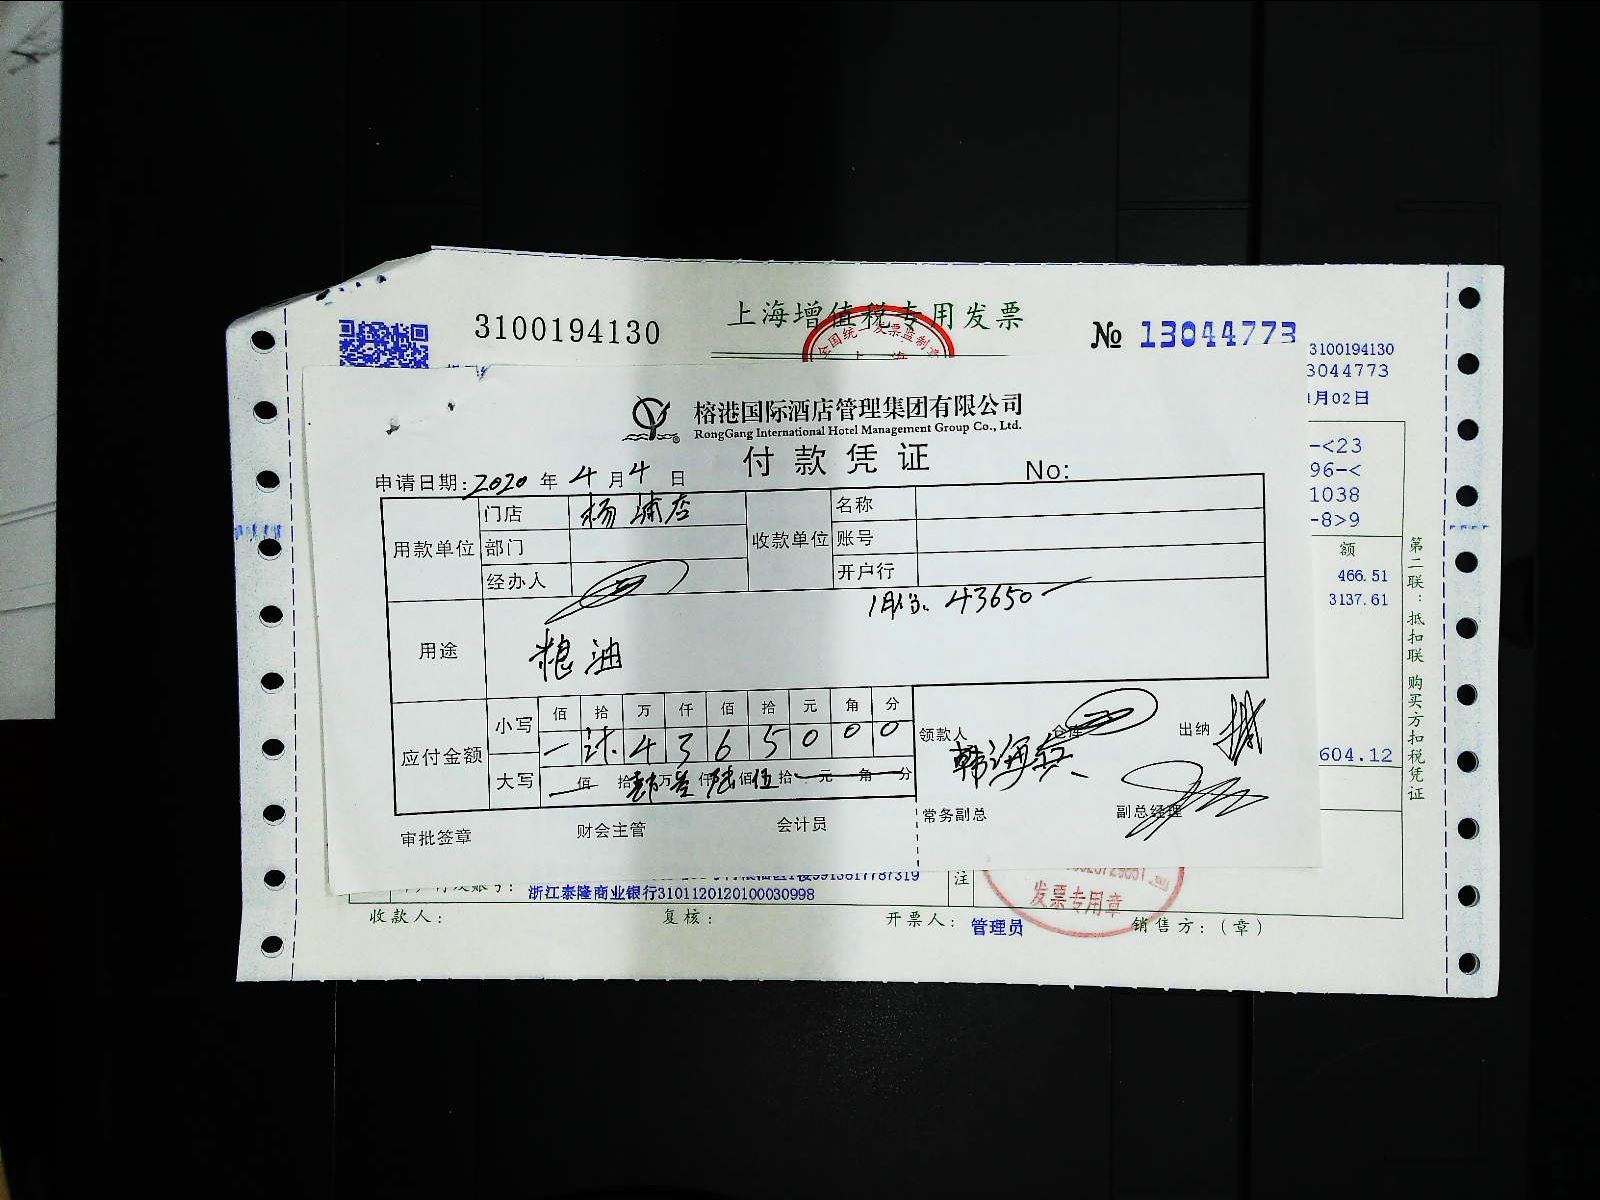 3100194130
上海增值税专用发票
№ 13044773
全国统一发票监制章
上海
3100194130
3044773
月02日
-<23
96-<
1038
-8>9
额
466.51
3137.61
604.12
第二联：抵扣联 购买方扣税凭证
榕港国际酒店管理集团有限公司
RongGang International Hotel Management Group Co., Ltd.
付款凭证
申请日期:2020年4月4日 No:
用款单位 门店 杨浦店 收款单位 名称
部门 账号
经办人 开户行
1月份. 43650
用途 粮油
应付金额 小写 佰 拾 万 仟 佰 拾 元 角 分
4 3 6 5 0 0 0
大写 佰 拾 肆万 叁仟 陆佰 伍拾 元 角 分
领款人 仓库 出纳
韩海兵
常务副总 副总经理
审批签章 财会主管 会计员
浙江泰隆商业银行3101120120100030998
注
发票专用章
收款人： 复核： 开票人：管理员 销售方：（章）